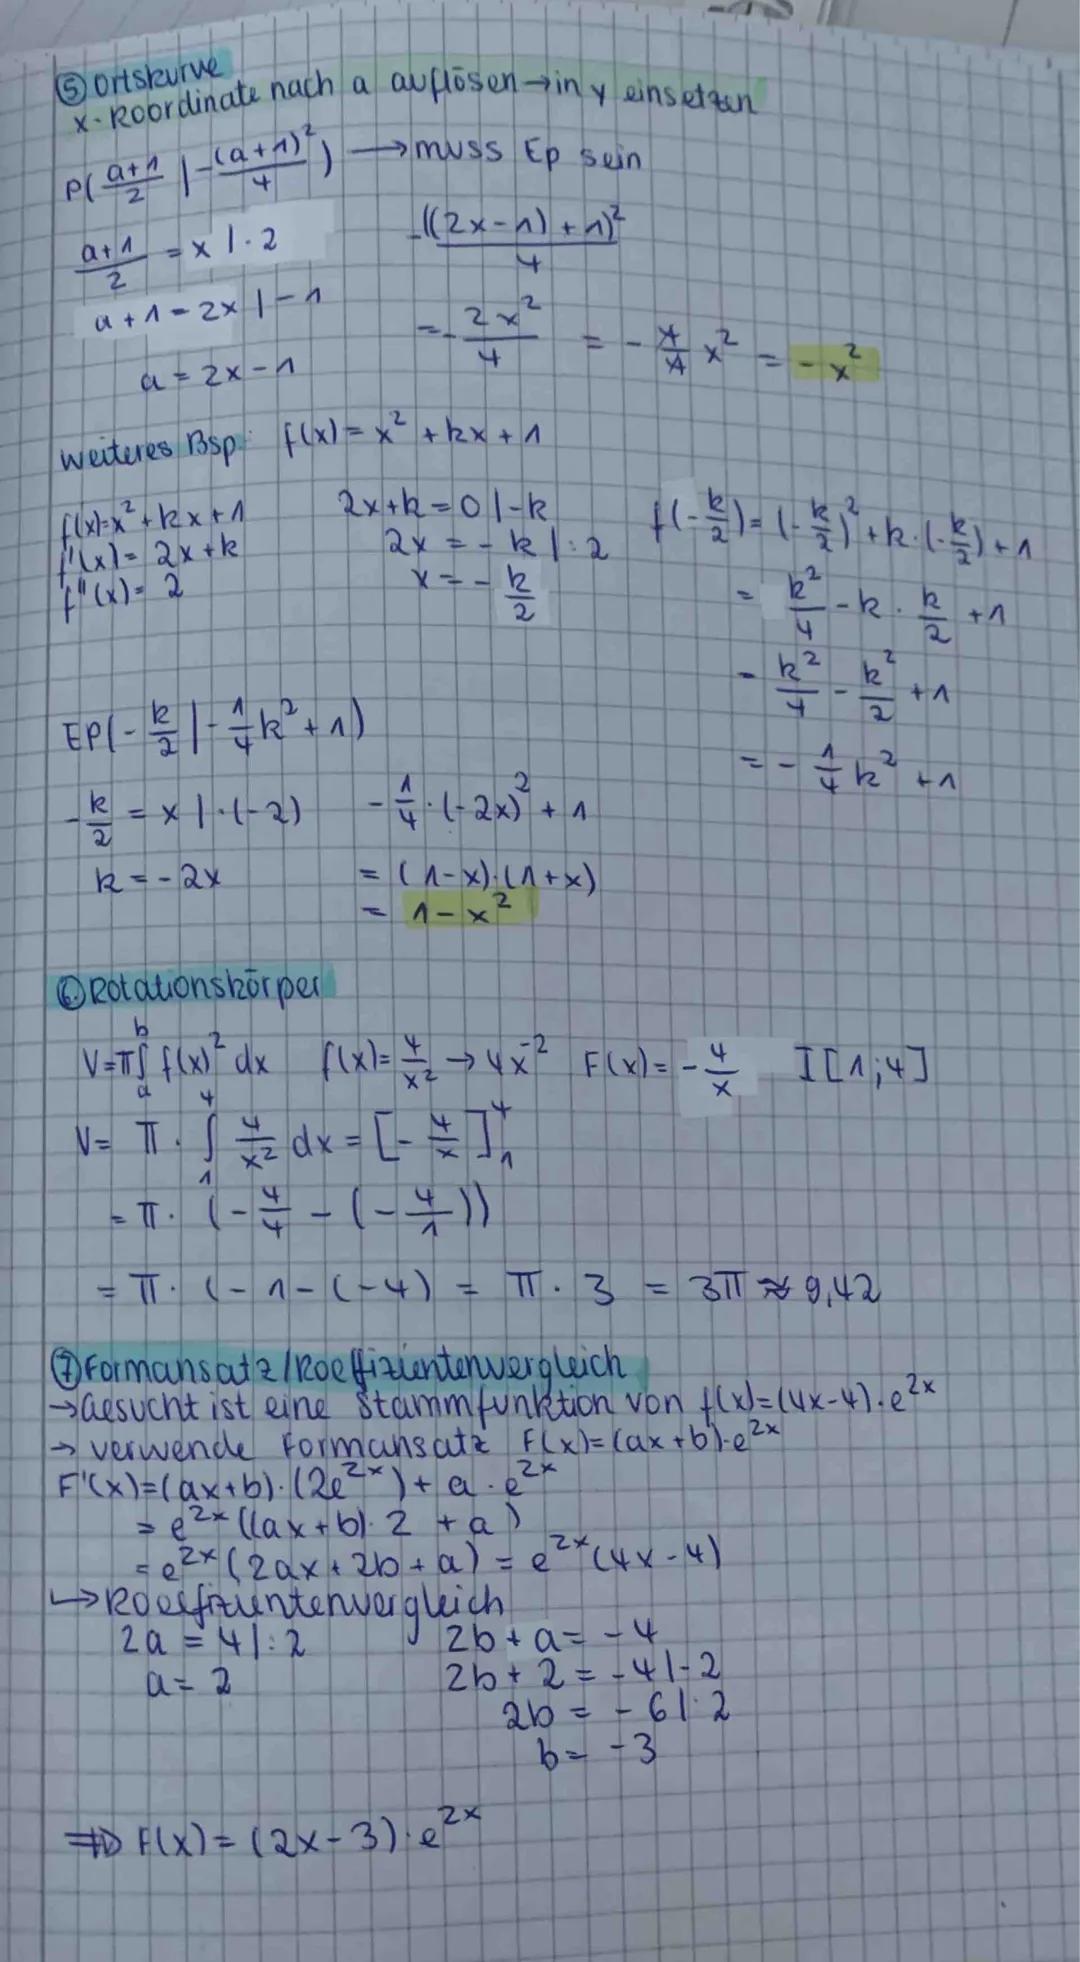 ⑤ Ortskurve
x-Koordinate nach a auflösen → in y einsetzen
P( (a+1)/2 | -(a+1)²/4 ) → muss Ep sein
(a+1)/2 = x |·2
a+1 = 2x |-1
a = 2x-1
-((2x-1)+1)²/4
= -2x²/4 = -4/4 x² = -x²
weiteres Bsp.: f(x) = x² + kx + 1
f(x)=x²+kx+1
f'(x) = 2x+k
f''(x) = 2
2x+k = 0 |-k
2x = -k |:2
x = -k/2
f(-k/2) = (-k/2)² + k·(-k/2) + 1
= k²/4 - k · k/2 + 1
= k²/4 - k²/2 + 1
= -1/4 k² + 1
EP(-k/2 | -1/4 k² + 1)
-k/2 = x |·(-2)
k = -2x
-1/4 · (-2x)² + 1
= (1-x)·(1+x)
= 1-x²
⑥ Rotationskörper
V=π∫ₐᵇ f(x)² dx f(x)= 4/x² → 4x⁻² F(x) = -4/x I[1;4]
V= π · ∫₁⁴ 4/x² dx = [-4/x]₁⁴
= π · (-4/4 - (-4/1))
= π · (-1-(-4) = π · 3 = 3π ≈ 9,42
⑦ Formansatz/Koeffizientenvergleich
→ Gesucht ist eine Stammfunktion von f(x)=(4x-4)·e²ˣ
→ verwende Formansatz F(x)=(ax+b)·e²ˣ
F'(x)=(ax+b)·(2e²ˣ)+ a·e²ˣ
= e²ˣ((ax+b)·2 + a)
= e²ˣ(2ax+2b+a) = e²ˣ(4x-4)
↳ Koeffizientenvergleich
2a = 4 |:2
a = 2
2b+a = -4
2b+2 = -4 |-2
2b = -6 |:2
b = -3
⇒ F(x) = (2x-3)·e²ˣ